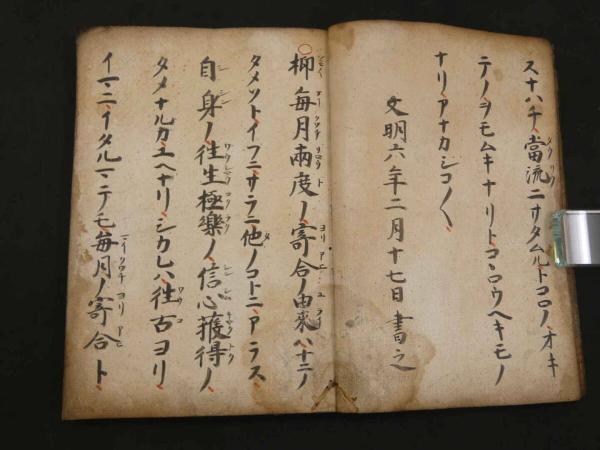 スナハチ、當流ニサタムルトコロノ、オキ
テノヲモムキナリトコヽロウヘキモノ
ナリ、アナカシコ〳〵
文明六年二月十七日書之
抑毎月兩度ノ寄合ノ由來ハナニノ
タメソトイフニ、サラニ他ノコトニアラス
自身ノ往生極樂ノ信心獲得ノ
タメナルカユヘナリ、シカレハ往古ヨリ
イマニイタルマテモ、毎月ノ寄合ト